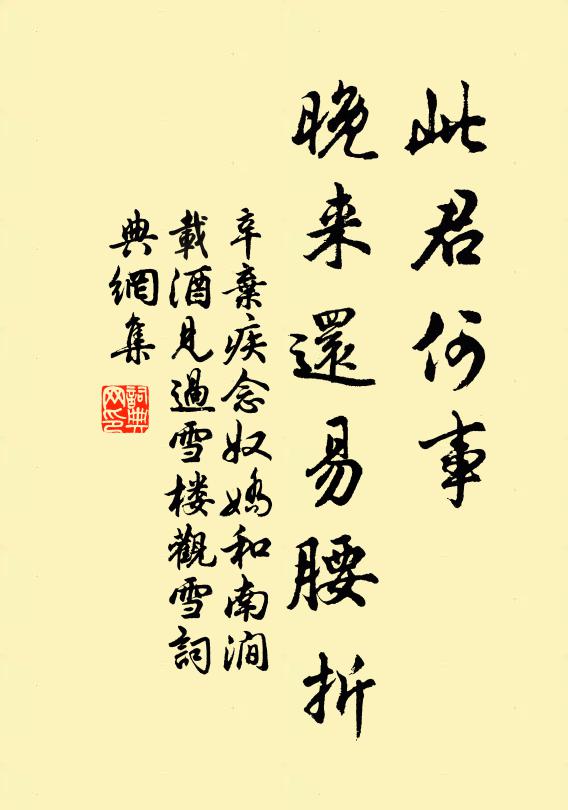 此君何事
晚来還易腰折
辛棄疾念奴嬌和南澗
載酒見過雪楼觀雪詞
典網集
詞典网印